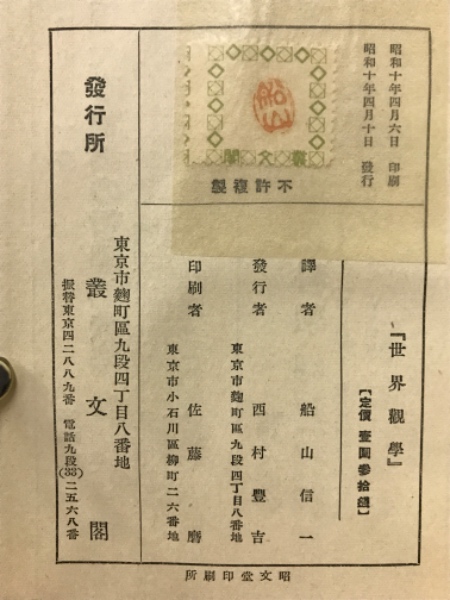 昭和十年四月六日 印刷
昭和十年四月十日 發行
叢文閣
不許複製
『世界觀學』
【定價 壹圓參拾錢】
譯者 船山信一
發行者 西村豐吉
東京市麴町區九段四丁目八番地
印刷者 佐藤磨
東京市小石川區柳町二六番地
發行所
東京市麴町區九段四丁目八番地
叢文閣
振替東京四二八八九番 電話九段(33)二五六八番
昭文堂印刷所